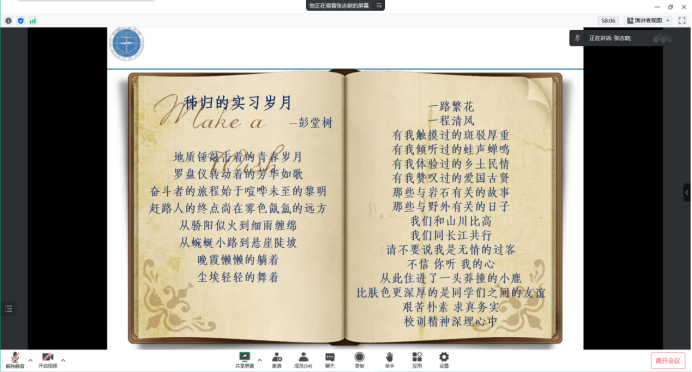 您正在观看张志庭的屏幕
58:06
演讲者视图
正在讲话: 张志庭;
秭归的实习岁月
Make a
Wish
--彭堂树
地质锤敲击着的青春岁月
罗盘仪转动着的芳华如歌
奋斗者的旅程始于喧哗未至的黎明
赶路人的终点尚在雾色氤氲的远方
从骄阳似火到细雨缠绵
从蜿蜒小路到悬崖陡坡
晚霞懒懒的躺着
尘埃轻轻的舞着
一路繁花
一程清风
有我触摸过的斑驳厚重
有我倾听过的蛙声蝉鸣
有我体验过的乡土民情
有我赞叹过的爱国古贤
那些与岩石有关的故事
那些与野外有关的日子
我们和山川比高
我们同长江共行
请不要说我是无情的过客
不信 你听 我的心
从此住进了一头莽撞的小鹿
比肤色更深厚的是同学们之间的友谊
艰苦朴素 求真务实
校训精神深埋心中
解除静音
开启视频
共享屏幕
邀请
成员(54)
聊天
录制
举手
应用
设置
离开会议